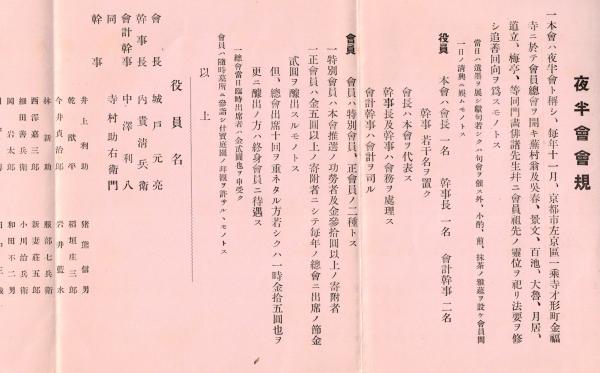 夜半會會規
一本會ハ夜半會ト稱シ、每年十一月、京都市左京區一乘寺才形町金福
寺ニ於テ會員總會ヲ開キ蕪村翁及吳春、景文、百池、大魯、月居、
道立、梅亭、等同門諸俳諧先生幷ニ會員祖先ノ靈位ヲ祀リ法要ヲ修
シ追善回向ヲ爲スモノトス
當日ハ遺墨ヲ展シ獻句若シクハ句會ヲ催ス外、小酌、煎、抹茶ノ雅莚ヲ設ケ會員間
一日ノ淸興ニ娛ムモノトス
役員 本會ハ會長一名 幹事長一名 會計幹事二名
幹事若干名ヲ置ク
會長ハ本會ヲ代表ス
幹事長及幹事ハ會務ヲ處理ス
會計幹事ハ會計ヲ司ル
會員 會員ハ特別會員、正會員ノ二種トス
一特別會員ハ本會推選ノ功勞者及金參拾圓以上ノ寄附者
一正會員ハ金五圓以上ノ寄附者ニシテ每年ノ總會ニ出席ノ節金
貳圓ヲ釀出スルモノトス
但、總會出席十回ヲ重ネタル方若シクハ一時金拾五圓也ヲ
更ニ釀出ノ方ハ終身會員ニ待遇ス
一總會當日臨時出席者ハ金貳圓也ヲ申受ク
會員ハ隨時墓所ニ參詣シ什寶庭園ノ拜觀ヲ許サル、モノトス
以上
役員名
會長 城戸元亮
幹事長 內貴淸兵衞
會計幹事 中澤利八
同 寺村助右衞門
幹事
井上利助 猪熊信男
乾獻平 稻垣庄三郎
今井貞治郎 岩井藍水
林新助 服部七兵衞
西澤嘉三郎 新妻莊五郎
細田善兵衞 小川治兵衞
岡岩太郎 和田不二男